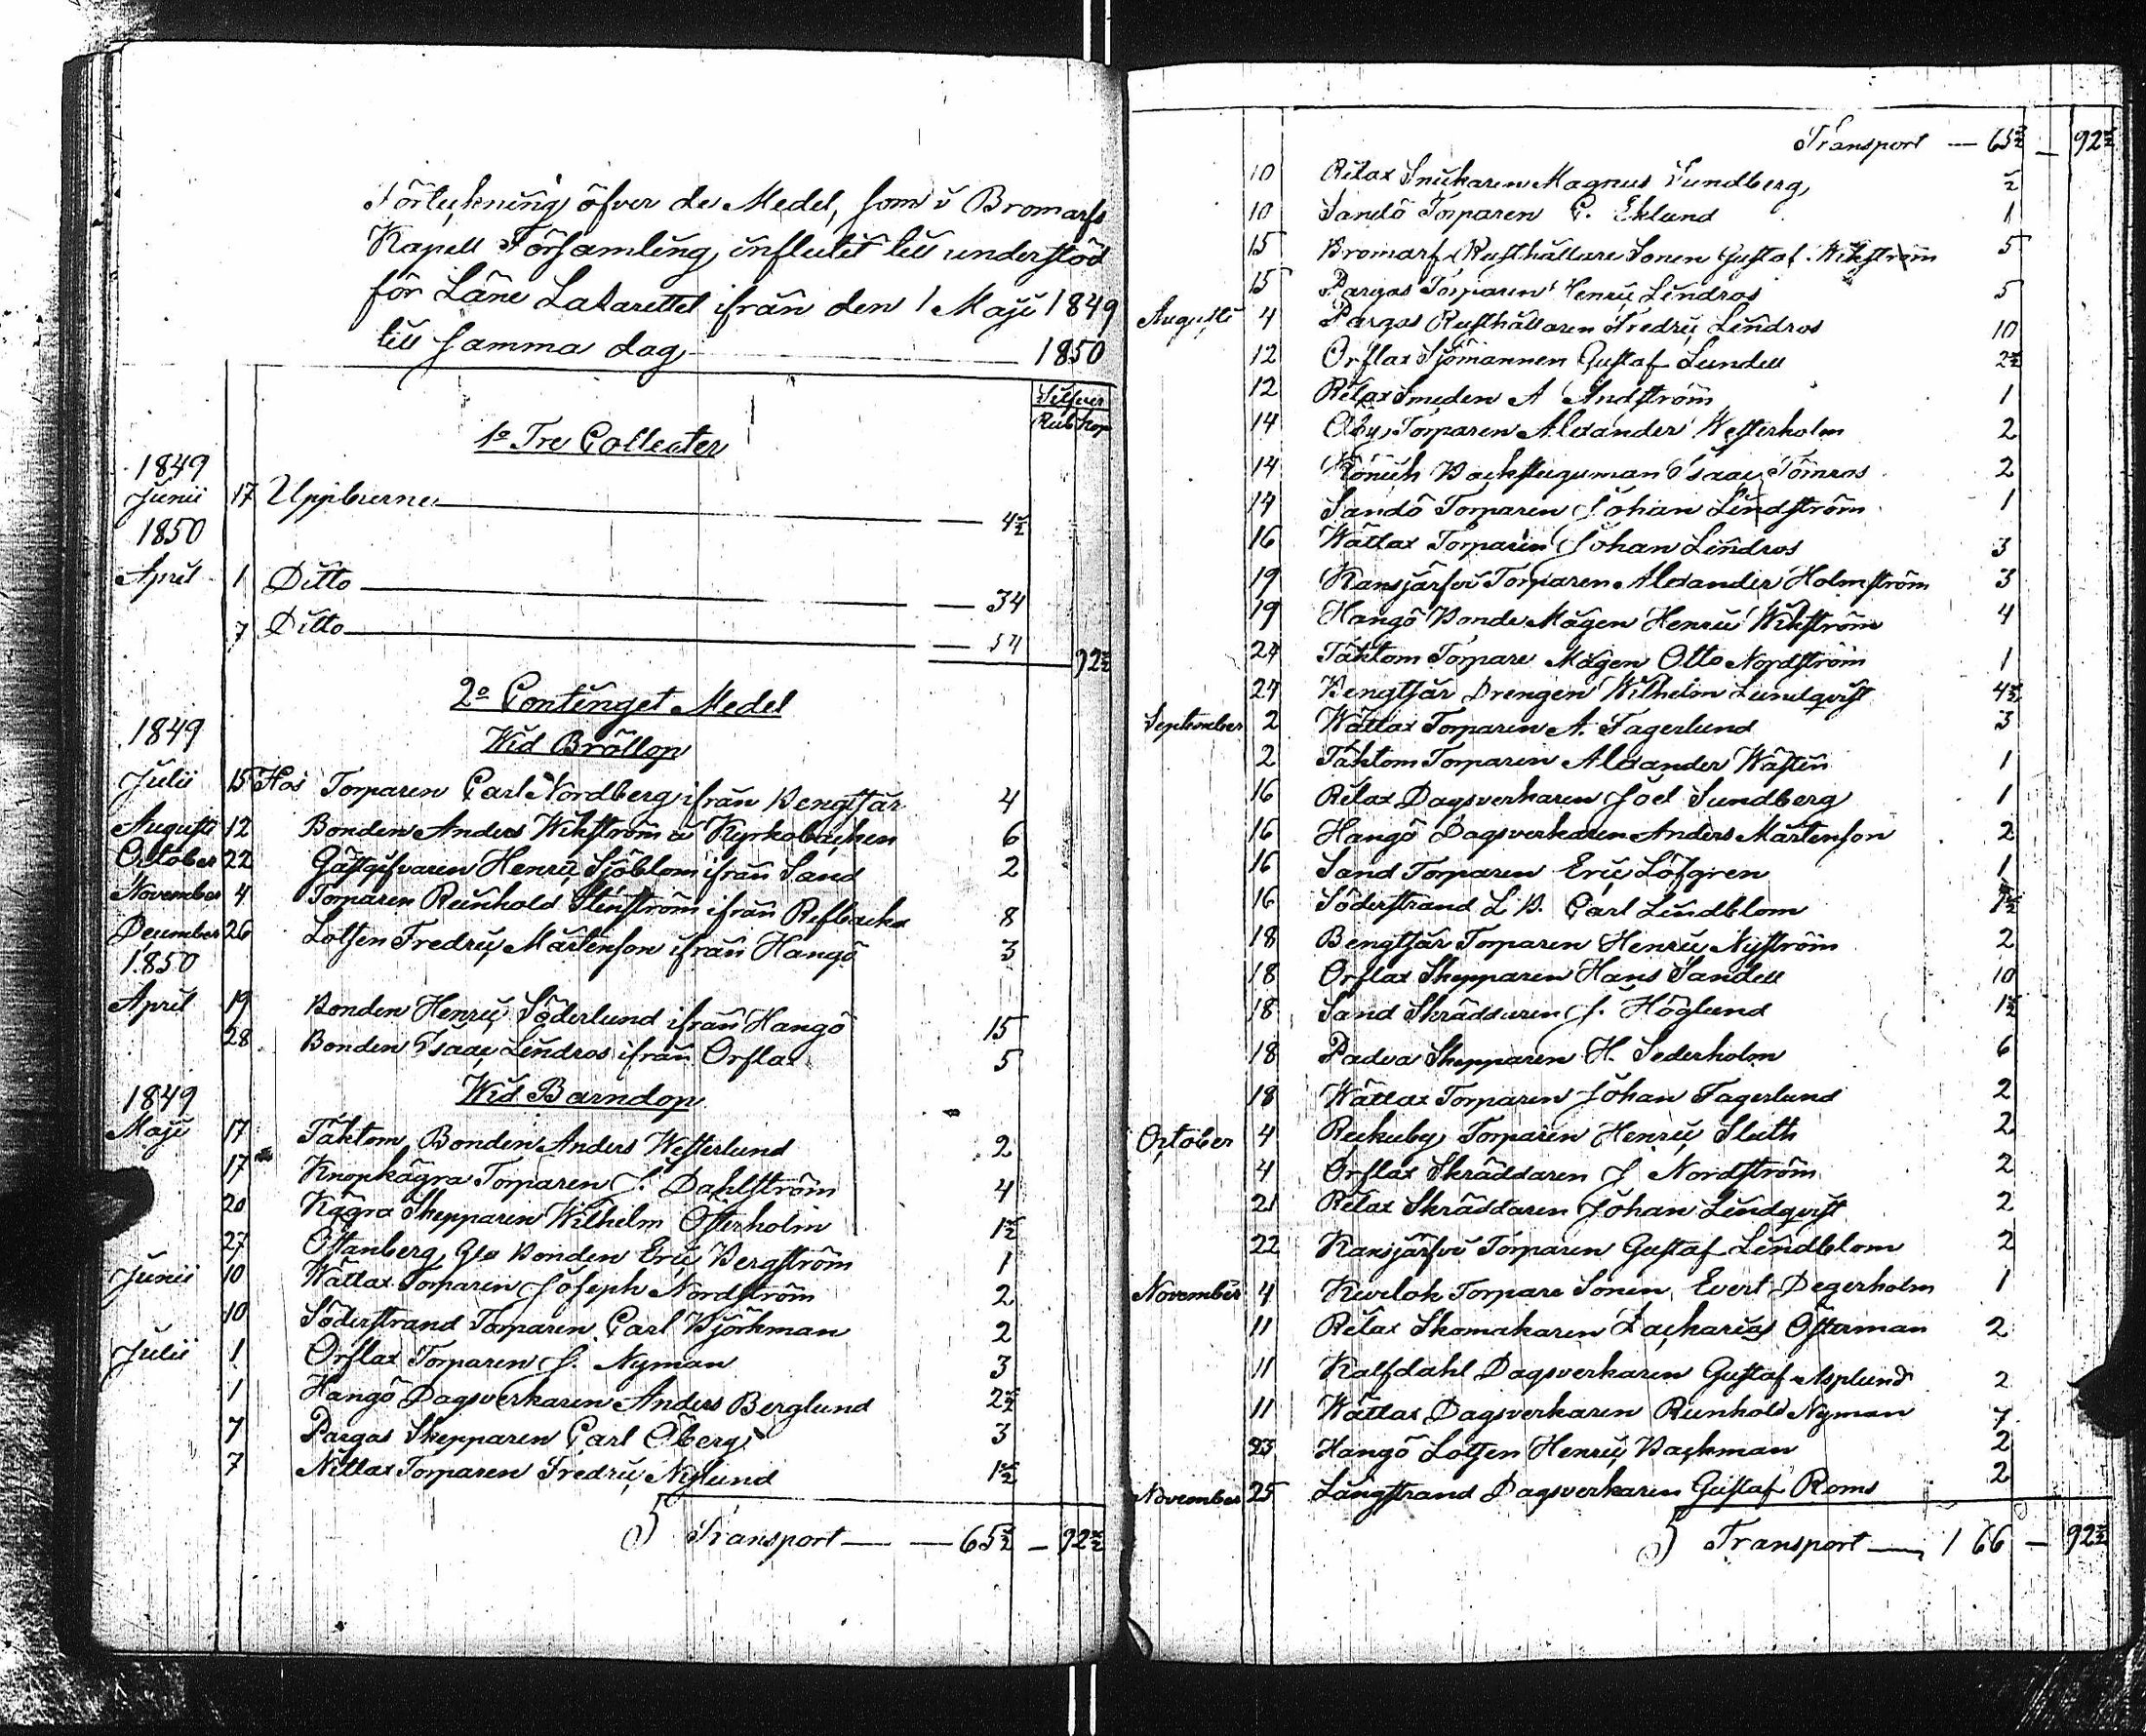 Förteckning öfver de Medel, som i Bromarfs
Kapell Församling influtit till understöd
för Läne Lazarettet ifrån den 1 Maji 1849
till samma dag — 1850
Silfver
Rub Kop
1o Tre Collecter
1849
Junii 17 Uppburne — 4½
1850
April 1 Ditto — 34
7 Ditto — 54
92½
2o Continget Medel
Wid Bröllop
1849
Julii 15 Hos Torparen Carl Nordberg ifrån Bengtsår 4
Augusti 12 Bonden Anders Wikström å Kyrkobacken 6
October 22 Gästgifvaren Henric Sjöblom ifrån Sand 2
November 4 Torparen Reinhold Stenström ifrån Refbacka 8
December 26 Lotsen Fredric Mårtenson ifrån Hangö 3
1850
April 19 Bonden Henric Söderlund ifrån Hangö 15
28 Bonden Isaac Lindros ifrån Orflax 5
Wid Barndop
1849
Maji 17 Täktom Bonden Anders Westerlund 2
17 Knopkägra Torparen J. Dahlström 4
20 Kägra Skepparen Wilhelm Österholm 1½
27 Öttanberg Bonden Eric Bergström 1
Junii 10 Wättlax Torparen Joseph Nordström 2
10 Söderstrand Torparen Carl Björkman 2
Julii 1 Orflax Torparen J. Nyman 3
1 Hangö Dagsverkaren Anders Berglund 2½
7 Pargas Skepparen Carl Öberg 3
7 Nittlax Torparen Fredric Nylund 1½
Transport — 65½ — 92½
Transport — 65½ — 92½
10 Rilax Snickaren Magnus Sundberg ½
10 Sandö Torparen C. Eklund 1
15 Bromarf Rusthållare Sonen Gustaf Wikström 5
15 Pargas Torparen Henric Lindros 5
Augusti 4 Pargas Rusthållaren Fredric Lindros 10
12 Orflax Sjömannen Gustaf Lundell 2½
12 Rilax Smeden A Andström 1
14 Öby Torparen Alexander Westerholm 2
14 Backstuguman Isaac Törnros 2
14 Sandö Torparen Johan Lindström 1
16 Wättlax Torparen Johan Lindros 3
19 Kansjärfvi Torparen Alexander Holmström 3
19 Hangö Bonde Mågen Henric Wikström 4
24 Täktom Torpare Mågen Otto Nordström 1
27 Bengtsår Drengen Wilhelm Lundqvist 4½
September 2 Wättlax Torparen A. Fagerlund 3
2 Täktom Torparen Alexander Wästin 1
16 Rilax Dagsverkaren Joel Sundberg 1
16 Hangö Dagsverkaren Anders Mårtenson 2
16 Sand Torparen Eric Löfgren 1
16 Söderstrand L. B. Carl Lindblom 1½
18 Bengtsår Torparen Henric Nyström 2
18 Orflax Skepparen Hans Sandell 10
18 Sand Skräddaren J. Höglund 1½
18 Padva Skepparen H. Sederholm 6
18 Wättlax Torparen Johan Fagerlund 2
October 4 Rickuby Torparen Henric Sluth 2
4 Orflax Skräddaren J Nordström 2
21 Rilax Skräddaren Johan Lindqvist 2
22 Kansjärfvi Torparen Gustaf Lindblom 2
November 4 Torpare Sonen Evert Degerholm 1
11 Rilax Skomakaren Zacharias Österman 2
11 Kalfdahl Dagsverkaren Gustaf Asplund 2
11 Wättlax Dagsverkaren Reinhold Nyman 7
23 Hangö Lotsen Henric Backman 2
November 25 Långstrand Dagsverkaren Gustaf Roms 2
Transport — 166 — 92½